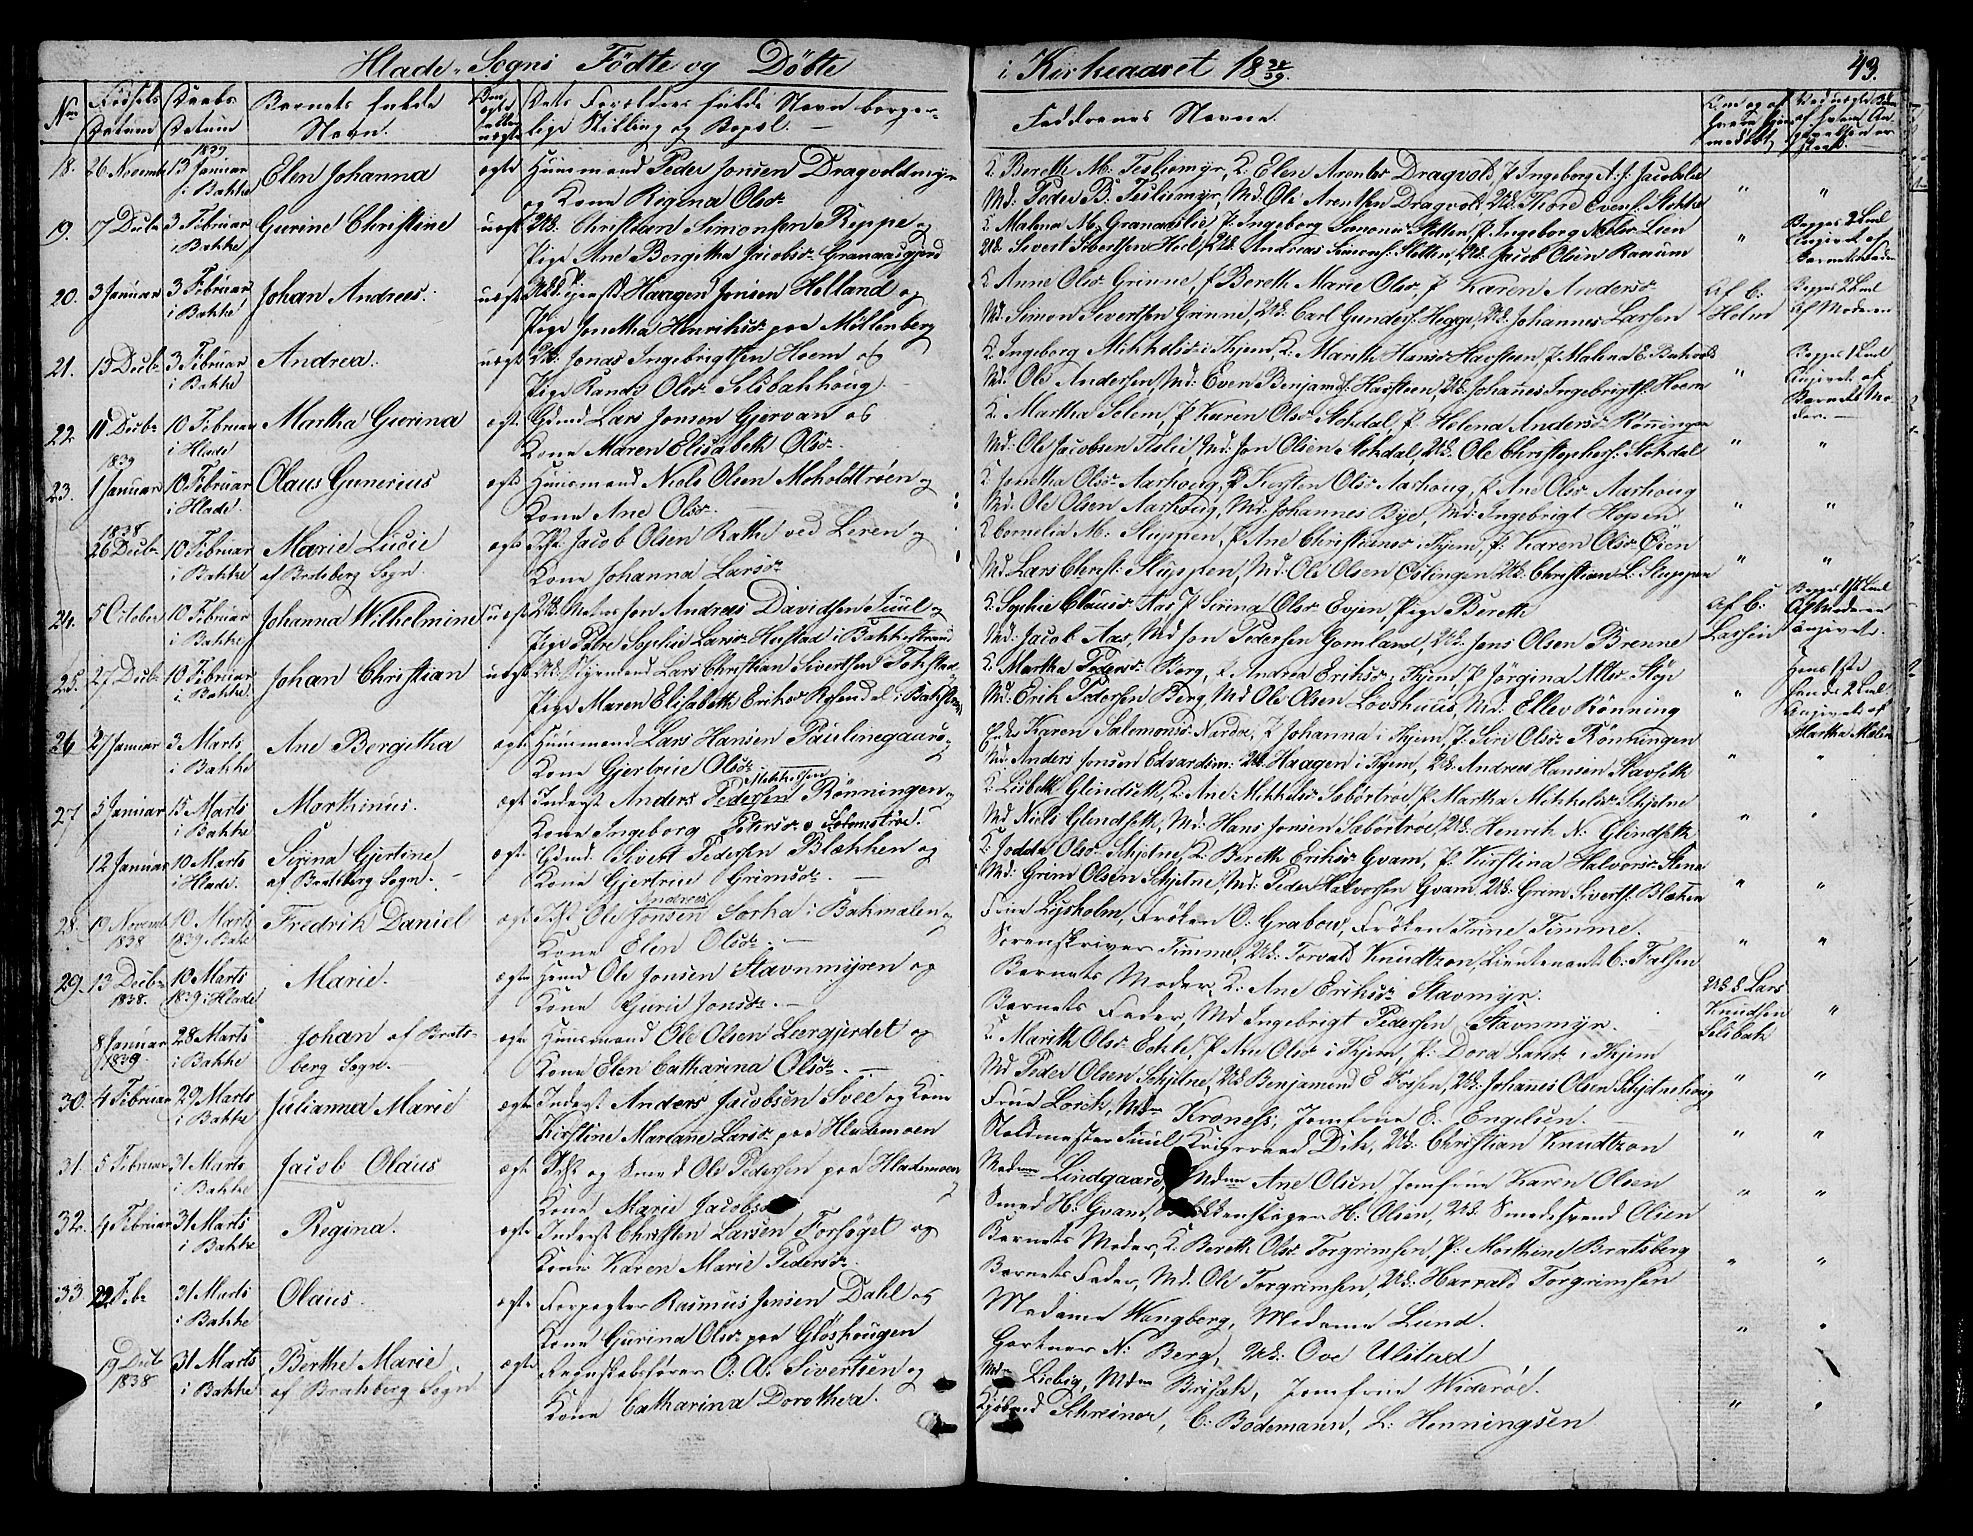 Hlade-Sogns Födte og Döbte
i Kirkeaaret 18 38/39.
43.
No
Fødsels Datum
Daabs Datum
Barnets fulde Navn.
Dets Forældres fulde Navn borgerlige Stilling og Bopæl.
Faddernes Navne.
18. 26 Novemb 13 Januar 1839 i Bakke Elen Johanna ægte Huusmand Peder Jonsen Dragvoldmyr
og Kone Regina Olsdr
K: Bereth M: Tesliemyr, K: Elen Arentsdr Dragvold, P Ingeborg A: Jacobslie
Md: Peder B. Tesliemyr, Md. Ole Arentsen Dragvold, Uk: Thore Evens. Stokke
19. 17 Decbr 3 Februar i Bakke Gurine Christine uægt Uk. Christian Simonsen Reppe og
Pige Ane Bergitha Jacobsdr Granaasgjerd
K Malena M. Granaaslie, P. Ingeborg Simonsdr Sletten, P. Ingeborg Lien
Uk. Sivert Sivertsen Hoel, Uk. Andreas Simons. Sletten, Uk. Jacob Olsen Ranum
Reppes 2 Leiel
Angivet af
Barnets Moder
20. 3 Januar 3 Februar i Bakke Johan Andreas. uægt Haagen Jonsen Holland og
Pige Jonetha Henriksdr paa Möllenberg
K Anne Olsdr Grinne, P Bereth Marie Olsdr, P Karen Andersdr
Md. Simon Sivertsen Grinne, Uk: Carl Gunders. Hegge, Uk. Johannes Larsen
Af C: Holm
21. 13 Decbr 3 Februar i Bakke Andrea. uægt Uk. Jonas Ingebrigtsen Hoem og
Pige Randi Olsdr Selsbakhoug.
K. Ingeborg Mikkelsdr i Thjem, K. Marith Hansdr Havsteen, P. Malena E. Bakvold
Md. Ole Andersen, Md: Even Benjam: Havsteen, Uk. Johannes Ingebrigts. Hoem
22. 11 Decbr 10 Februar i Hlade Martha Gurina ægte Gdmd Lars Jonsen Gjervan og
Kone Maren Elisabeth Olsdr.
K. Martha Solem, P Karen Olsdr Stokdal, P. Helena Andersdr Rönningen
Md. Ole Jacobsen Teslie, Md: Jon Olsen Stokdal, Uk. Ole Christophers. Stokdal
23. 1839 1 Januar 10 Februar i Hlade. Olaus Gunerius ægte Huusmand Niels Olsen Moholdtröen og
Kone Ane Olsdr.
K Jonetha Olsdr Aarhoug, P Kirsten Olsdr Aarhoug, P. Ane Olsdr Aarhoug
Md. Ole Olsen Aarhoug, Md. Johannes Bye, Md: Ingebrigt Hopen
1838 26 Decbr 10 Februar i Bakke Marie Lucie
af Bratsberg Sogn ægte Jacob Olsen Rathe ved Leren og
Kone Johanna Larsdr
K Cornelia M: Sluppen, P. Ane Christiansdr i Thjem, P: Karen Olsdr Öien
Md. Lars Christ: Sluppen, Md. Ole Olsen Öslingen, Uk. Christian L: Sluppen
24. 5 October 10 Februar i Bakke Johanna Wilhelmine uægt Uk. Andreas Davidsen Juul og
Pige Petre Sophie Larsdr Hustad i Bakkestrand
K. Sophie Clausdr Aas, P Sirina Olsdr Evjen, Pige Bereth
Md: Jacob Aas, Md Jon Pedersen Gomland, Uk. Jens Olsen Brenne
Af C: Larsen
25. 27 Decbr 10 Februar i Bakke Johan Christian uægt Uk. Styrmand Lars Christian Sivertsen Fokstad og
Pige Maren Elisabeth Eriksdr Rosendal i Bakstr
K. Martha Pedersdr Berg, K Andrea Eriksdr i Thjem, P Jörgina
Md. Erik Pedersen Berg, Md Ole Olsen Lovshuus, Md: Ellev Rönning
26 2 Januar 3 Marts i Bakke Ane Bergitha ægte Huusmand Lars Hansen Paulinegaard og
Kone Gjertrue Olsdr
Karen Salomonsdr Nardo, K Johanna i Thjem, P: Siri Olsdr Rönningen
Md. Anders Jonsen Edvardsm: Uk. Haagen i Thjem, Uk. Andreas Hansen Stavseth
27 5 Januar 15 Marts i Bakke Morthinus. ægte Inderst Anders Pedersen Mikkelsen Rönningen og
Kone Ingeborg Petersdr Solemströe.
K Lisbeth Glendseth, K: Ane Mikkelsdr Sabortröe, P. Martha Mikkelsdr Schjetne
Md. Niels Glendseth, Md: Hans Jonsen Sabortröe, Uk. Henrik N: Glendseth
12 Januar 10 Marts i Hlade. Serina Gjertine
af Bratsberg Sogn. ægte Gdmd. Sivert Pedersen Blekken og
Kone Gjertrue Grimsdr.
K: Jodda Olsdr Schjetne, K: Bereth Eriksdr Qvam, P. Kirstina Halvorsdr Stene
Md: Grim Olsen Schjetne, Md: Peder Halvorsen Qvam, Uk. Grim Siverts. Blekken
28. 19 Novemb 1838 10 Marts 1839 Bakke Fredrik Daniel ægte Ole Jonsen Andreas Sorha i Bakmælen og
Kone Elen Olsdr.
Frue Lysholm, Fröken O: Grabow, Fröken Trine Timme.
Sorenskriver Timme, Uk: Torvald Knudtzon, Lieutenant C: Falsen
29. 13 Decbr 1838. 10 Marts 1839 i Hlade Marie. ægte Ole Jonsen Stavnmyren og
Kone Gurie Jonsdr.
Barnets Moder, K: Ane Eriksdr Stavnmyr.
Barnets Fader, Md Ingebrigt Pedersen Stavnmyr.
Lars Knudsen Selsbak
8 Januar 1839. 28 Marts i Bakke Johan af Bratsberg Sogn. ægte Huusmand Ole Olsen Leergjerdet og
Kone Elen Catharina Olsdr.
K Marith Olsdr Eekle, P Ane Olsdr i Thjem, P: Dora Larsdr i Thjem
Md Peder Olsen Schjetne, Uk. Benjamend E Fossen, Uk. Johanes Olsen Schjetnehoug
30. 4 Februar 29 Marts i Bakke Julianna Marie ægte Inderst Anders Jacobsen Svee og Kone
Kirstine Mariane Larsdr paa Hlademoen
Frue Lorck, Mdm Kroness, Jomfrue E. Engelsen.
Toldmester Juul, Krigsraad Ditz, Uk. Christian Knudtzon
31. 5 Februar 31 Marts i Bakke Jacob Olaus ægte og Smed Ole Pedersen paa Hlademoen og
Kone Marie Jacobsdr
Madame Lindgaard, Mdm Ane Olsen, Jomfrue Karen Olsen
Smed H: Qvam, H: Olsen, Uk. Smedesvend Olsen
32. 4 Februar 31 Marts i Bakke Regina. ægte Inderst Christen Larsen Forsöget og
Kone Karen Marie Pedersdr.
Barnets Moder, K. Bereth Olsdr Torgrimsen, P: Morthine Bratsberg
Barnets Fader, Md. Ole Torgrimsen, Uk. Harrald Torgrimsen
33 22 Febr 31 Marts i Bakke Olaus. ægte Forpagter Rasmus Jensen Dahl og
Kone Gurina Olsdr paa Glöshougen
Madame Wangberg, Madame Lund.
Gartner N: Berg, Uk: Ove Ulstad
19 Decbr 1838 31 Marts i Bakke Berthe Marie
af Bratsberg Sogn ægte Regnskabsförer O. A. Sivertsen og
Kone Catharina Dorothea.
Mdm Liebig, Mdm Brisak, Jomfrue Wideröe.
Kjöbmd Schreiner, C: Bodemann, L: Henningsen